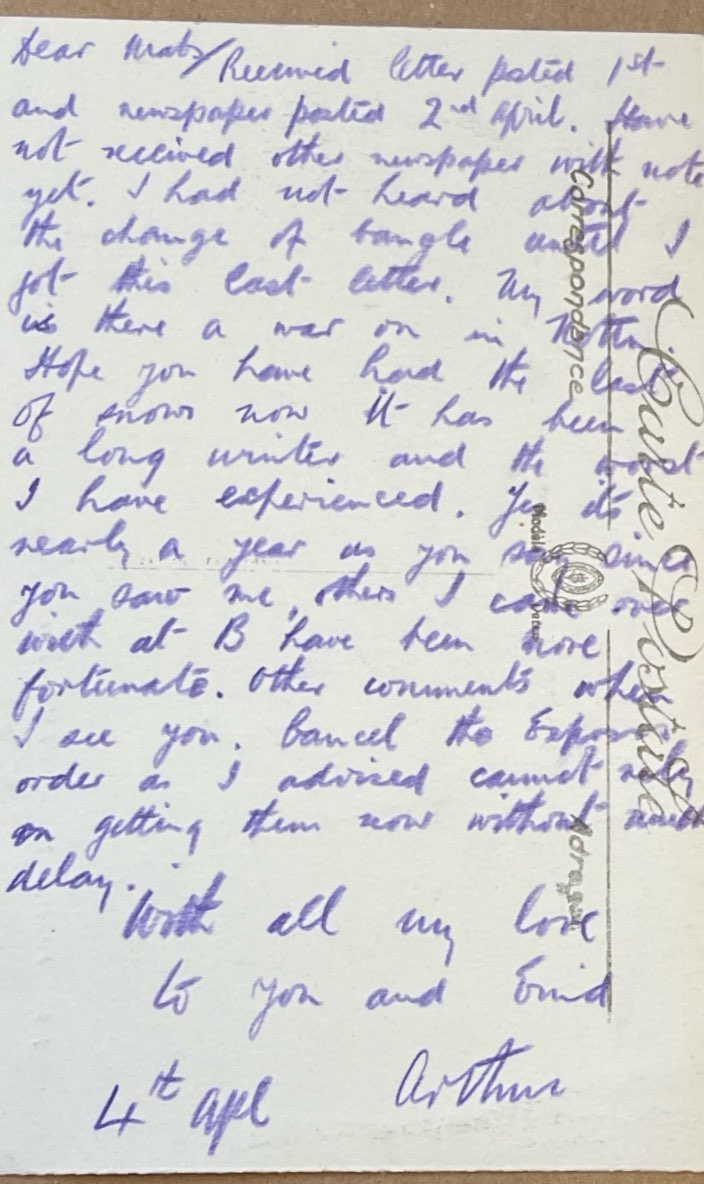 Dear Mabs/Received letter posted 1st
and newspaper posted 2nd April. Have
not received other newspaper with note
yet. I had not heard about
the change of bangle until I
got this last letter. My word
is there a war on in Nottm.
Hope you have had the last
of snows now It has been
a long winter and the worst
I have experienced. Yes its
nearly a year as you say since
you saw me, others I came over
with at B have been more
fortunate. Other comments when
I see you. Cancel the
order as I advised cannot rely
on getting them now without much
delay.
With all my love
to you and Enid
4th Apl Arthur
Carte Postale
Correspondance